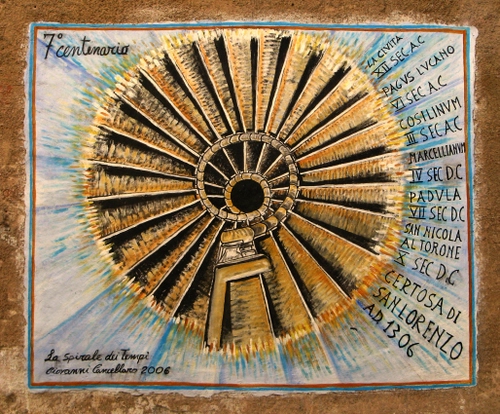 7° centenario
LA CIVITA
XII SEC. A.C
PAGUS LUCANO
VI SEC. A.C
COSILINUM
III SEC. A.C
MARCELLIANUM
IV SEC D.C
PADULA
VII SEC D.C
SAN NICOLA
AL TORONE
X SEC D.C
CERTOSA DI
SAN LORENZO
A.D. 1306
La Spirale dei Tempi
Giovanni Cancellaro 2006